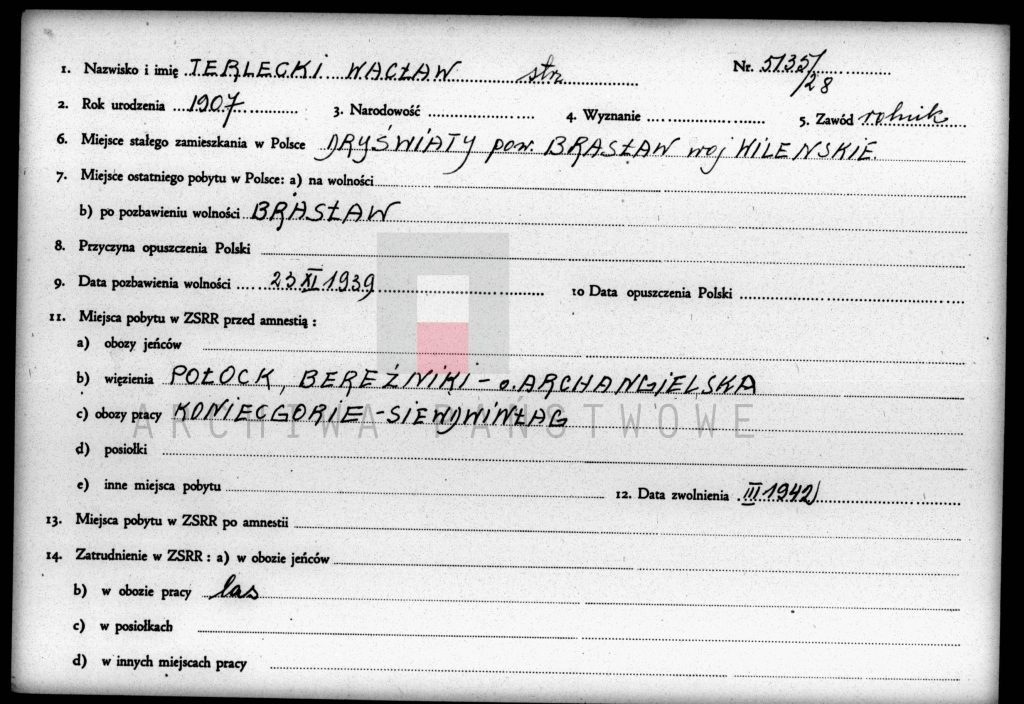 1. Nazwisko i imię TERLECKI WACŁAW str. Nr. 5135/28
2. Rok urodzenia 1907 3. Narodowość 4. Wyznanie 5. Zawód rolnik
6. Miejsce stałego zamieszkania w Polsce DRYŚWIATY pow. BRASŁAW woj WILEŃSKIE.
7. Miejsce ostatniego pobytu w Polsce: a) na wolności
b) po pozbawieniu wolności BRASŁAW
8. Przyczyna opuszczenia Polski
9. Data pozbawienia wolności 23 XI 1939 10 Data opuszczenia Polski
11. Miejsca pobytu w ZSRR przed amnestią :
a) obozy jeńców
b) więzienia POŁOCK, BEREŹNIKI - o. ARCHANGIELSKA
c) obozy pracy KONIECGORIE - SIEWDWINŁAG
ARCHIWA PAŃSTWOWE
d) posiołki
e) inne miejsca pobytu 12. Data zwolnienia III 1942
13. Miejsca pobytu w ZSRR po amnestii
14. Zatrudnienie w ZSRR : a) w obozie jeńców
b) w obozie pracy las
c) w posiołkach
d) w innych miejscach pracy